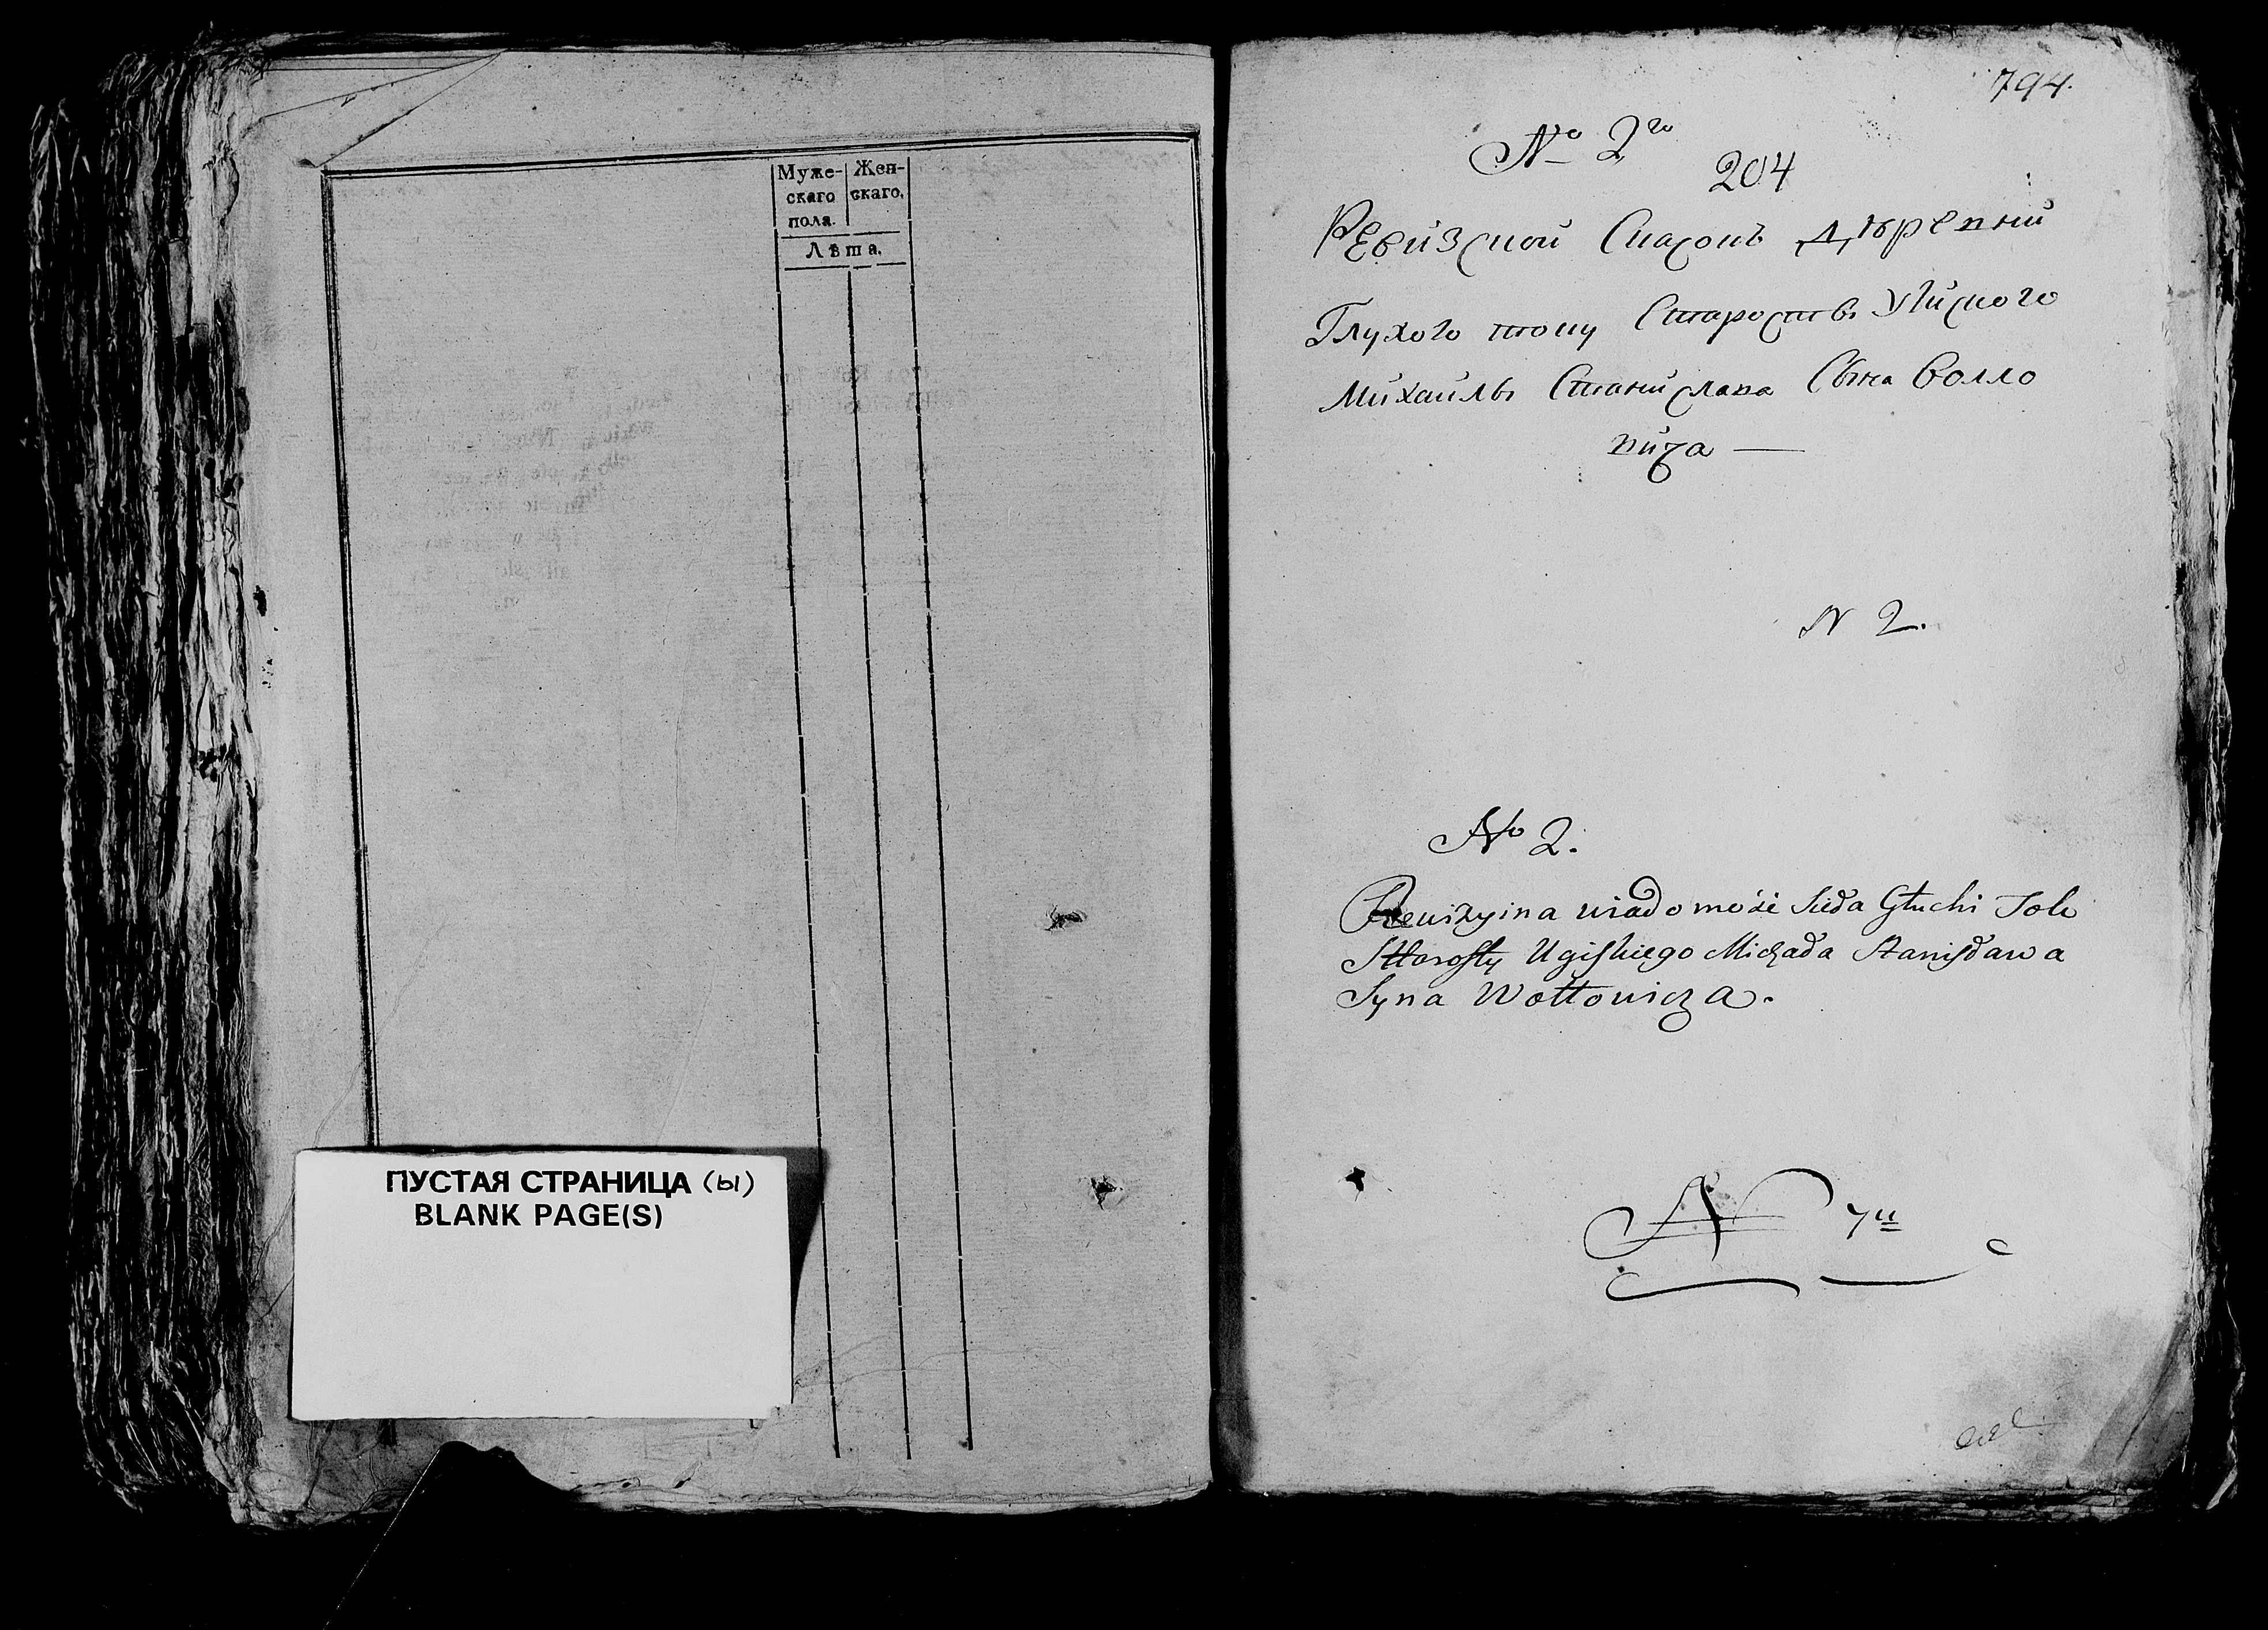 Муже-
скаго
пола.
Жен-
скаго.
Лѣта.
ПУСТАЯ СТРАНИЦА (ы)
BLANK PAGE(S)
794.
№ 2го
204
Ревизской Сказокъ Дѣревни
Глухого току Старосты Угиского
Михаилы Станислава Сына Волло
вича —
N 2.
No 2.
Rewizyina wiadomość Sieła Głuchi Tok
Starosty Ugiskiego Michała Stanisława
Syna Wołłowicza.
N 7й